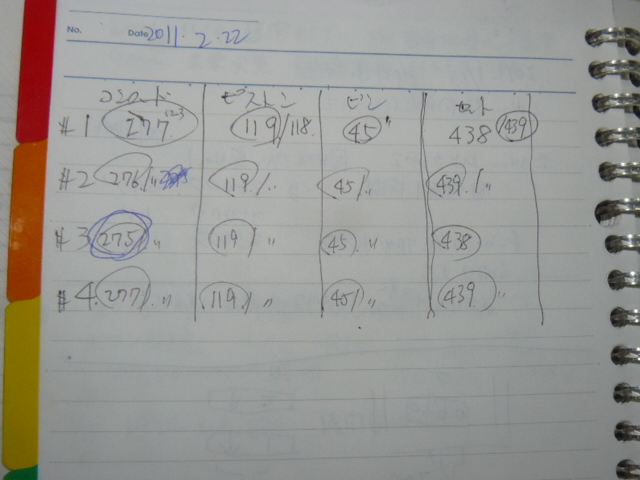 No. Date 2011. 2. 22
コンロッド ピストン ピン セット
#1 277 119/118 45" 438 439
#2 276/" 119/" 45/" 439/"
#3 275/" 119/" 45/" 438
#4 277/" 119/" 45/" 439"